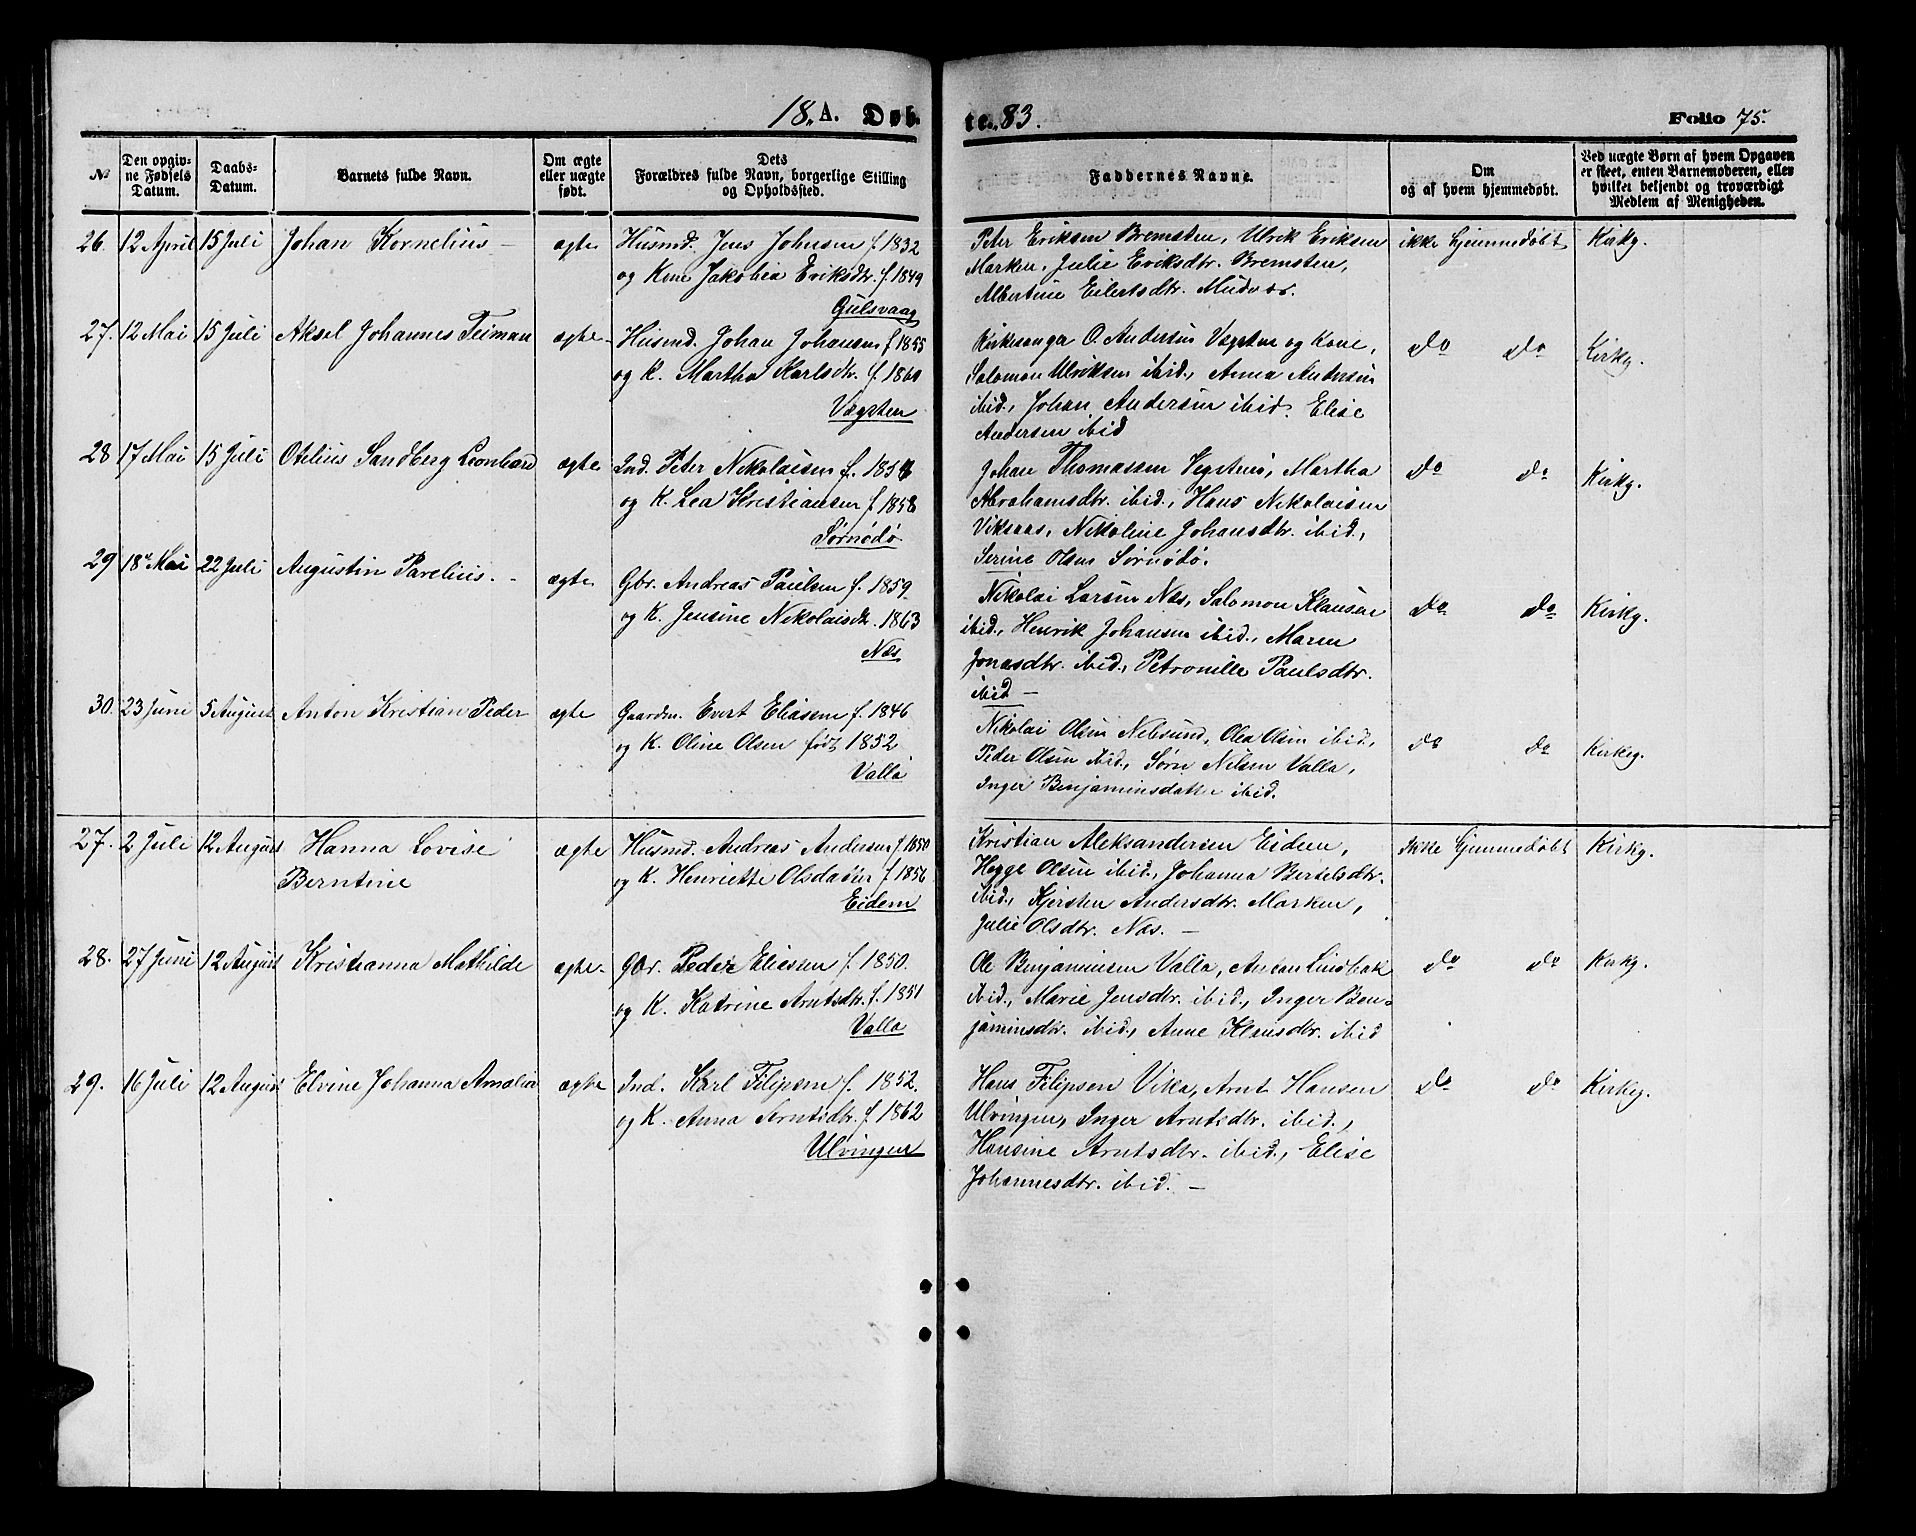 18 A. Døb-
te. 83.
Folio 75.
№
Den opgiv-
ne Fødsels
Datum.
Daabs-
Datum.
Barnets fulde Navn.
Om ægte
eller uægte
født.
Dets
Forældres fulde Navn, borgerlige Stilling
og Opholdssted.
Faddernes Navne.
Om
og af hvem hjemmedøbt.
Ved uægte Børn af hvem Opgaven
er skeet, enten Barnemoderen, eller
hvilket bekjendt og troværdigt
Medlem af Menigheden.
26. 12 April 15 Juli Johan Kornelius – ægte
Husmd. Jens Johnsen f. 1832
og Kone Jakobia Eriksdtr. f. 1849
Gulsvaag
Peter Eriksen Bremsten, Ulrik Eriksen
Marken, Julie Eriksdtr. Bremsten,
Albertine Eilertsdtr.
ikke hjemmedøbt Kirkg.
27. 12 Mai 15 Juli Aksel Johannes Teiman ægte
Husmd. Johan Johansen f 1855
og K. Martha Karlsdtr. f. 1860
Vægsten
Kirkesanger O. Andersen Vægsten og Kone,
Salomon Ulriksen ibid., Anna Andersen
ibid., Johan Andersen ibid. Elise
Andersen ibid
do do Kirkg.
28 17 Mai 15 Juli Otelius Sandberg Leonhard ægte
Ind. Peter Nikolaisen f.
og K. Lea Kristiansen f. 1858
Sørnødø
Johan Thomassen Martha
Abrahamsdtr. ibid., Hans Nikolaisen
Viksaas, Nikoline Johansdtr. ibid.,
Serine Olsen Sørnødø.
do do Kirkg.
29 18de Mai 22 Juli Augustin Parelius. - ægte
Gbr. Andreas Paulsen f. 1859.
og K. Jensine Nikolaisdtr. 1863
Næs
Nikolai Larsen Næs, Salomon Klausen
ibid., Henrik Johansen ibid., Maren
Jonasdtr. ibid., Petronille Paulsdtr.
ibid –
do do Kirkg.
30. 23 Juni 5 August Anton Kristian Peder ægte
Gaardm. Evert Eliasen f. 1846
og K. Oline Olsen født 1852
Valla
Nikolai Olsen Nebsund, Olea Olsen ibid.,
Peder Olsen ibid., Sørn Nilsen Valla,
Inger Benjaminsdatter ibid.
do do Kirkeg.
27. 2 Juli 12 August Hanna Lovise
Berntine
ægte
Husmd. Andreas Andersen f. 1850
og K. Henriette Olsdatter f. 1856
Eidem
Kristian Aleksandersen Eidem,
Hegge Olsen ibid., Johanna Bertelsdtr.
ibid., Kjersten Andersdtr. Marken,
Julie Olsdtr. Næs. –
Ikke hjemmedøbt Kirkg.
28. 27 Juni 12 August Kristianna Mathilde ægte
Gbr. Peder Eliesen f. 1850.
og K. Katrine Arntsdtr. f. 1851
Valla
Ole Benjaminsen Valla, Lindbak
ibid., Marie Jensdtr. ibid., Inger Ben-
jaminsdtr. ibid., Anne Klausdtr. ibid
do do Kirkg.
29. 16 Juli 12 August Elvine Johanna Amalia ægte
Ind. Karl Filipsen f. 1852.
og K. Anna Arntsdtr. f. 1862
Ulvingen
Hans Filipsen Vika, Arnt Hansen
Ulvingen, Inger Arntsdtr. ibid.,
Hansine Arntsdtr. ibid., Elise
Johannesdtr. ibid. –
do do Kirkeg.